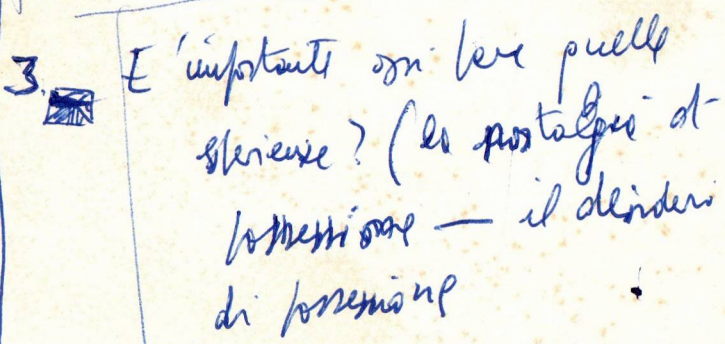 3. E' importante oggi fare quelle
esperienze? (la nostalgia d
possessione — il desideri
di possessione